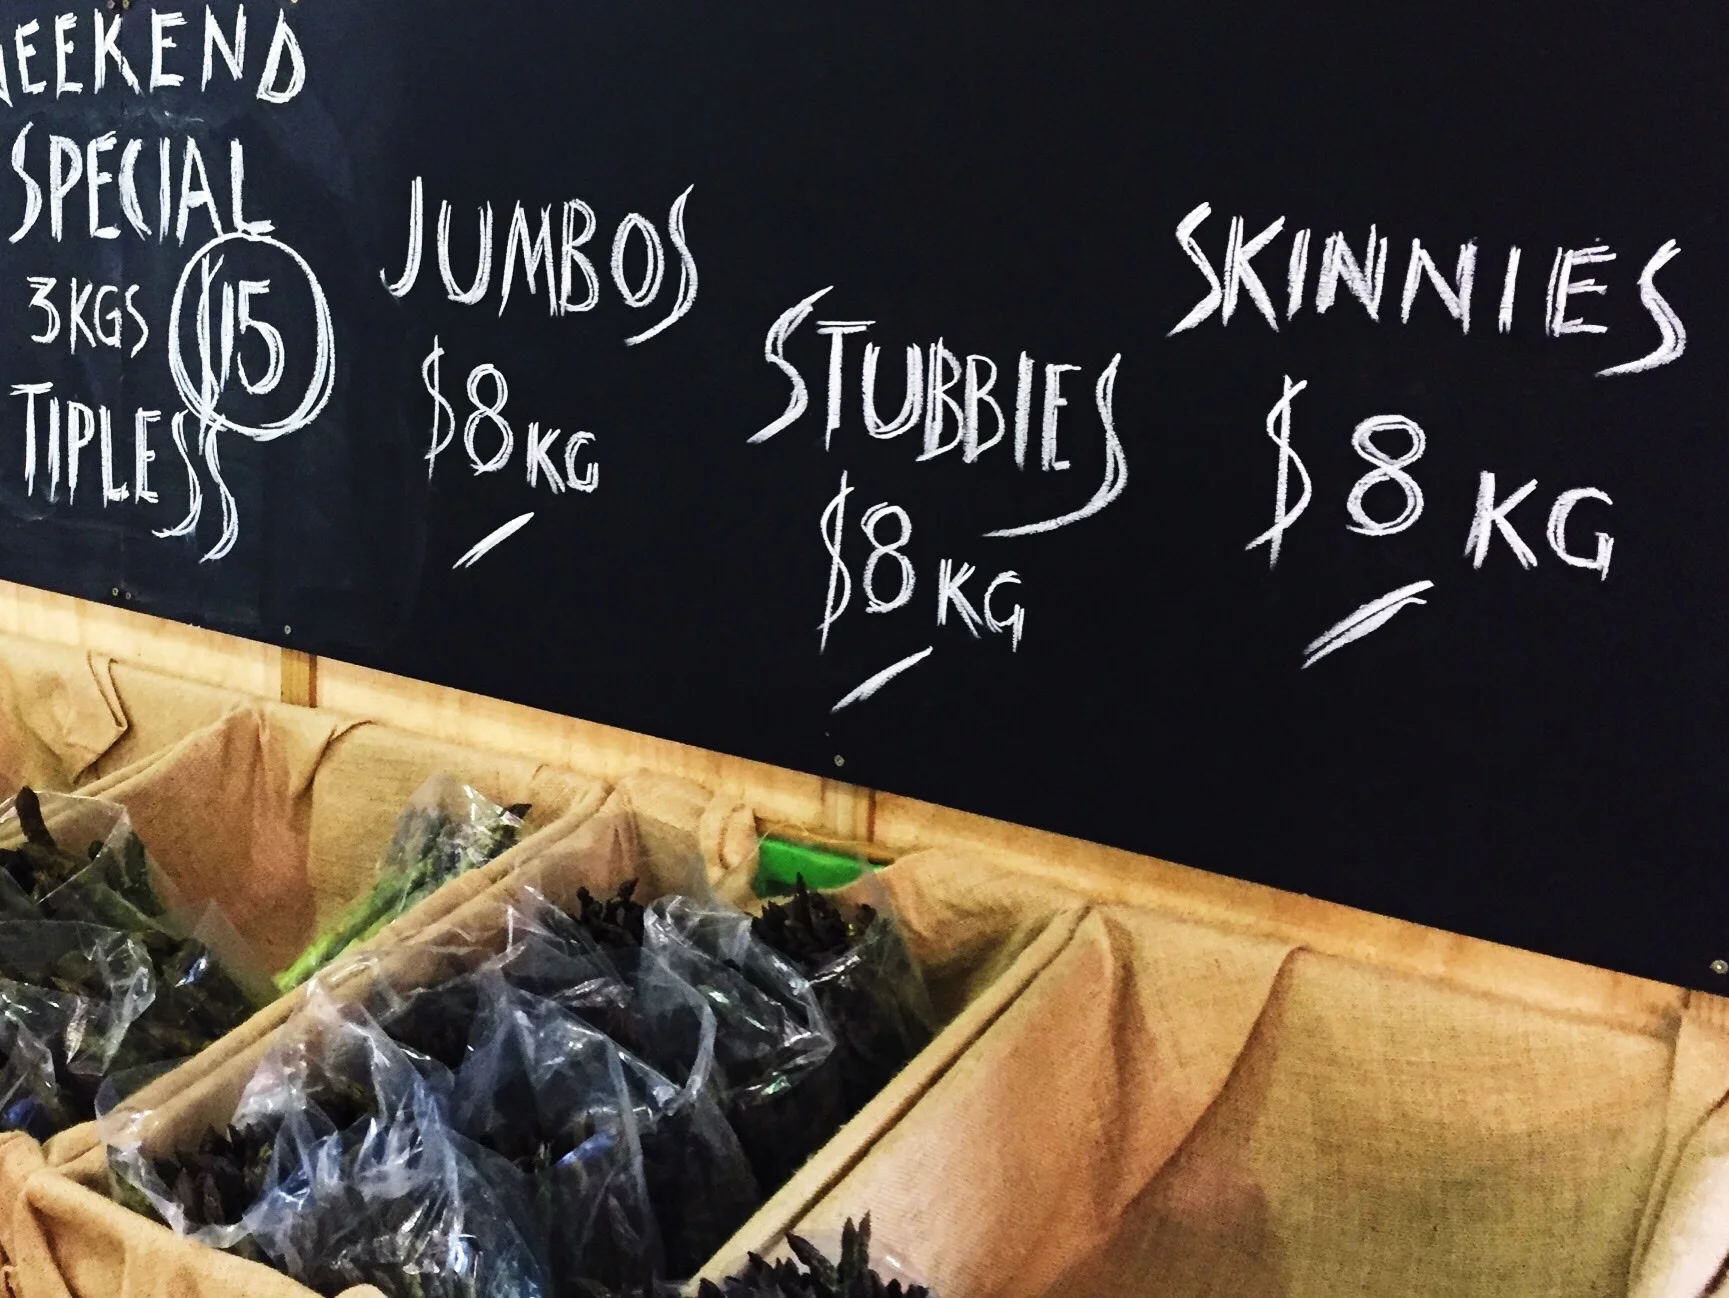 WEEKEND
SPECIAL
3KGS $15
TIPLESS
JUMBOS
$8KG
STUBBIES
$8KG
SKINNIES
$8KG